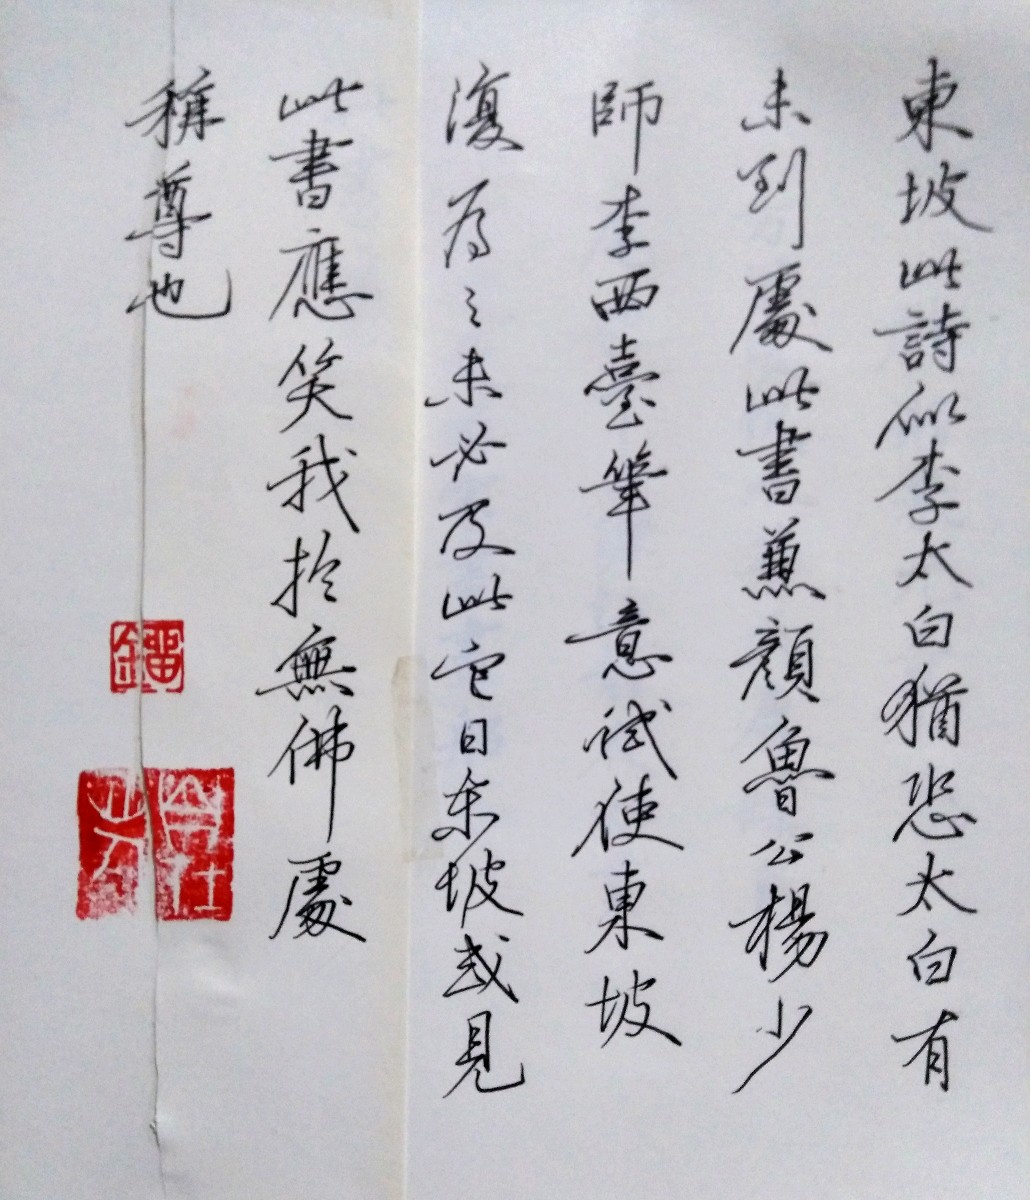 東坡此詩似李太白猶恐太白有
未到處此書兼顏魯公楊少
師李西臺筆意試使東坡
復為之未必及此它日東坡或見
此書應笑我於無佛處
稱尊也